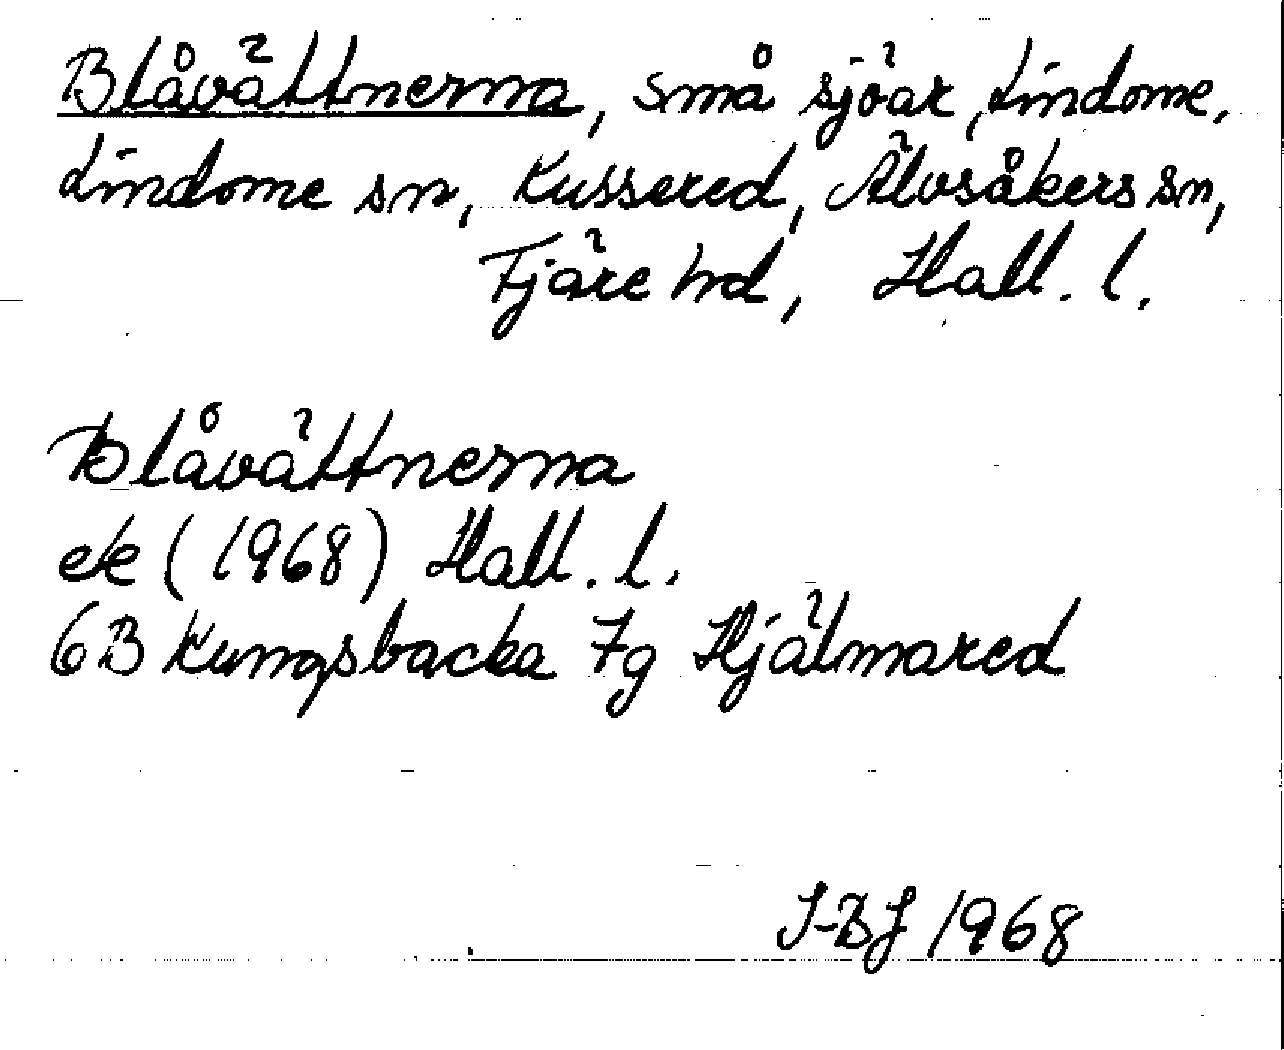 Blåvättnerna, små sjöar, Lindome,
Lindome sn, Kussered, Älvsåkers sn,
Fjäre hd, Hall. l.
Blåvättnerna
ek (1968) Hall. l.
6B Kungsbacka 7g Hjälmared
I-BJ 1968